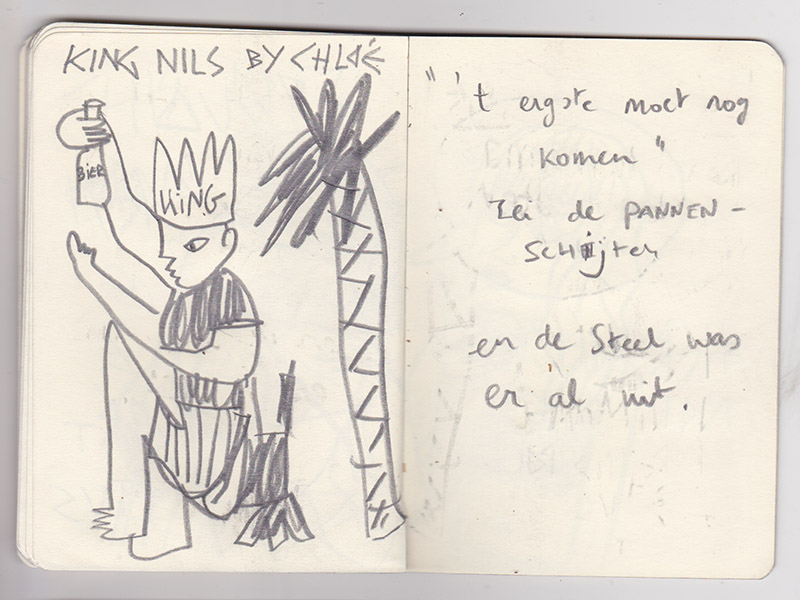 KING NILS BY CHLOÉ
BIER
KING
" 't ergste moet nog
komen "
Zei de PANNEN-
SCHijter
en de Steel was
er al uit.